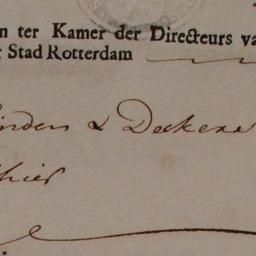 n ter Kamer der Directeurs va
Stad Rotterdam
inden & Deckers
hier